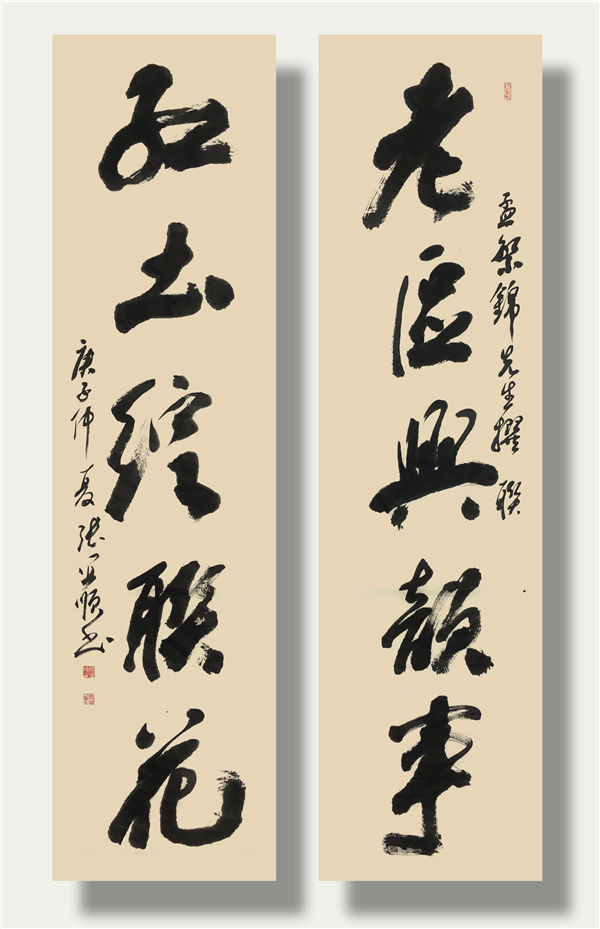 孟繁錦先生撰聯
老區興韻事
紅土綻聯花
庚子仲夏張順書